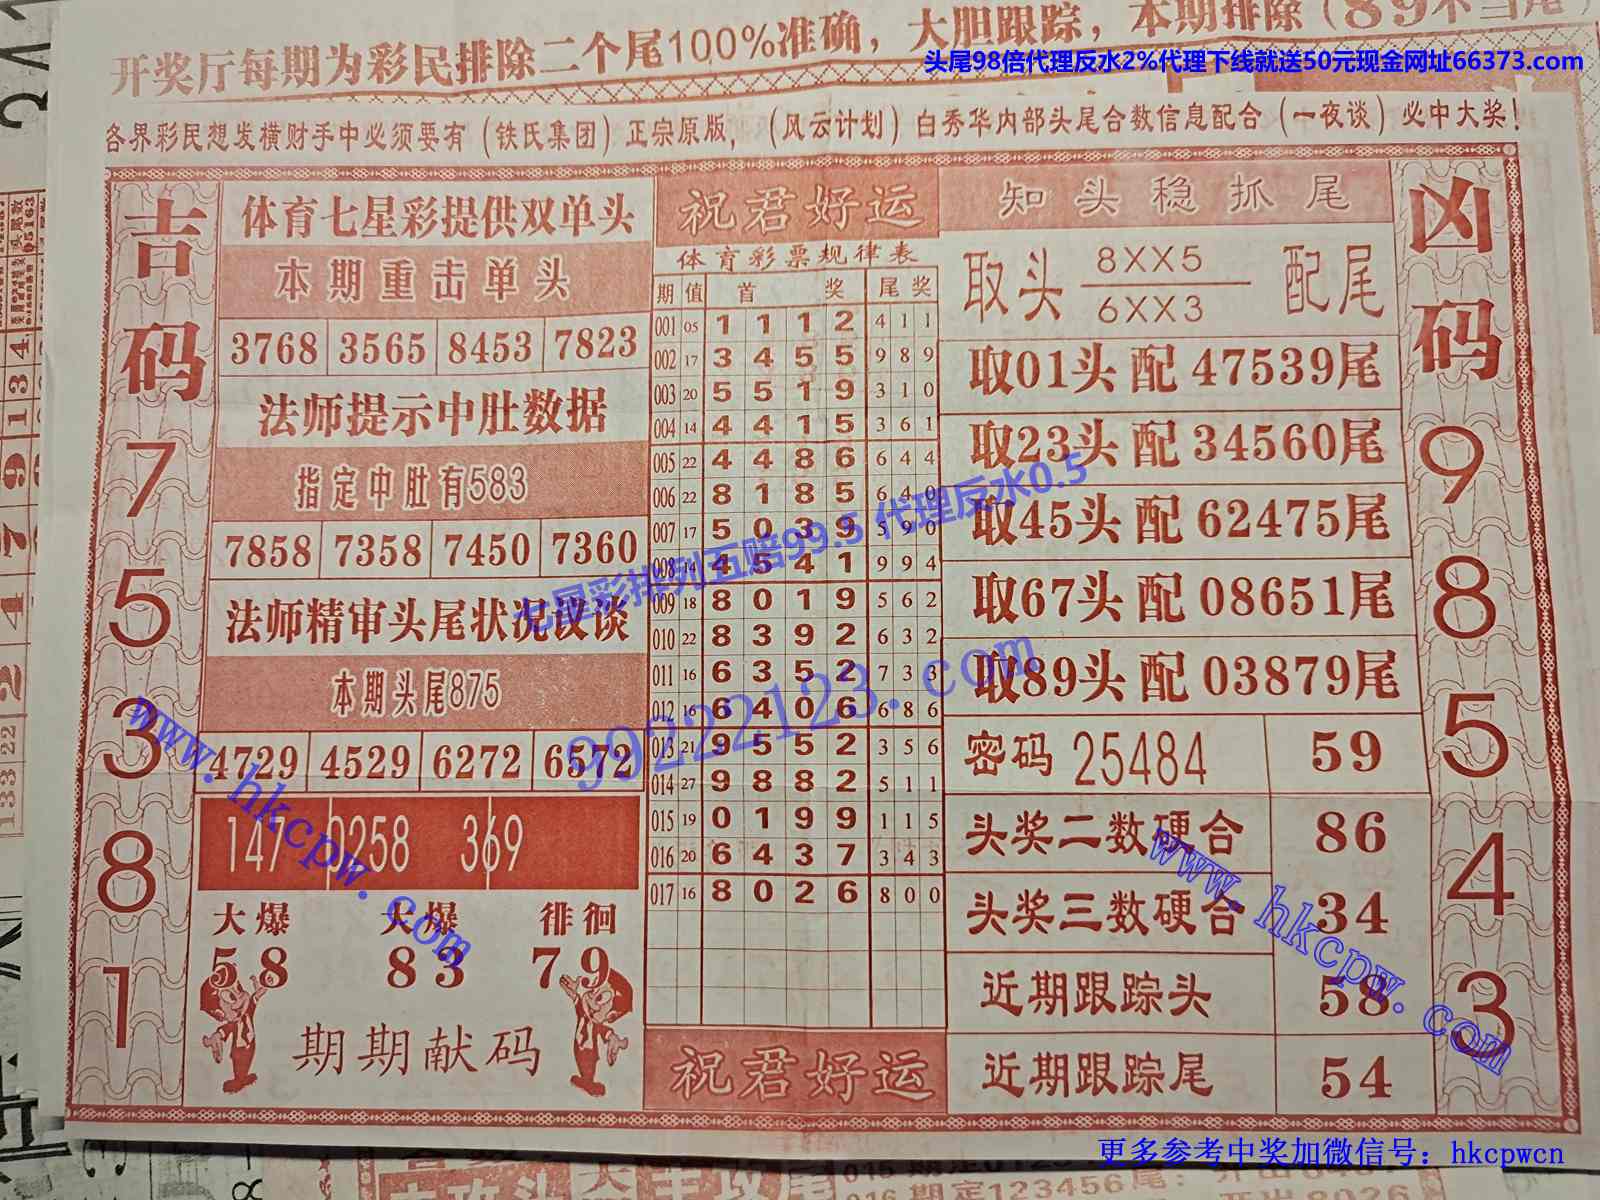 开奖厅每期为彩民排除二个尾100%准确，大胆跟踪，本期排除(89不当尾)
头尾98倍代理反水2%代理下线就送50元现金网址66373.com
各界彩民想发横财手中必须要有(铁氏集团)正宗原版，(风云计划)白秀华内部头尾合数信息配合(一夜谈)必中大奖!
吉码
7
5
3
8
1
体育七星彩提供双单头
本期重击单头
3768 3565 8453 7823
法师提示中肚数据
指定中肚有583
7858 7358 7450 7360
法师精审头尾状况议谈
本期头尾875
4729 4529 6272 6572
147 0258 369
大爆 大爆 徘徊
58 83 79
期期献码
祝君好运
体育彩票规律表
期 值 首 奖 尾 奖
001 05 1 1 1 2 4 1 1
002 17 3 4 5 5 9 8 9
003 20 5 5 1 9 3 1 0
004 14 4 4 1 5 3 6 1
005 22 4 4 8 6 6 4 4
006 22 8 1 8 5 6 4 0
007 17 5 0 3 9 5 9 0
008 14 4 5 4 1 9 9 4
009 18 8 0 1 9 5 6 2
010 22 8 3 9 2 6 3 2
011 16 6 3 5 2 7 3 3
012 16 6 4 0 6 6 8 6
013 21 9 5 5 2 3 5 6
014 27 9 8 8 2 5 1 1
015 19 0 1 9 9 1 1 5
016 20 6 4 3 7 3 4 3
017 16 8 0 2 6 8 0 0
祝君好运
知头稳抓尾
取头 8XX5 配尾
6XX3
取01头 配 47539尾
取23头 配 34560尾
取45头 配 62475尾
取67头 配 08651尾
取89头 配 03879尾
密码 25484 59
头奖二数硬合 86
头奖三数硬合 34
近期跟踪头 58
近期跟踪尾 54
凶码
9
8
5
4
3
七星彩排列五赔99.5 代理反水0.5
99222123.com
www.hkcpw.com
www.hkcpw.com
更多参考中奖加微信号: hkcpwcn